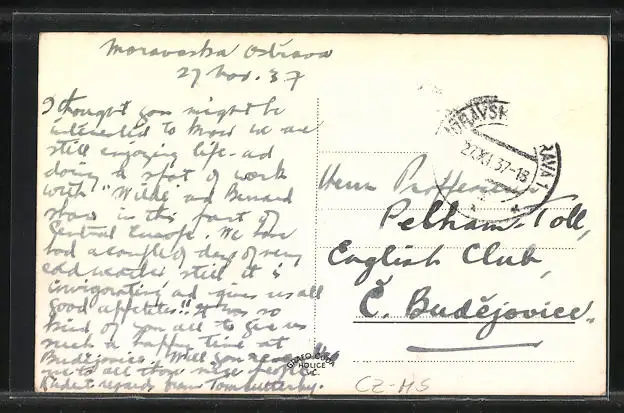 Moravska Ostrava
27 Nov. 37
I thought you might be
interested to know we are
still enjoying life - ad
doing a spot of work
with "Wilde" ad Bernard
Shaw in this part of
Central Europe. We have
had a couple of days of very
cold weather still it is
invigorating ad gives us all
good appetites!! It was so
kind of you all to give us
such a happy time at
Budějovice. Will you
me to all those nice people
Kindest regards from Tom
27.XI.37-18
Herr Professor
Pelham-Toll,
English Club,
Č. Budějovice.
GRAFO ČUDA
HOLICE
CZ-MS